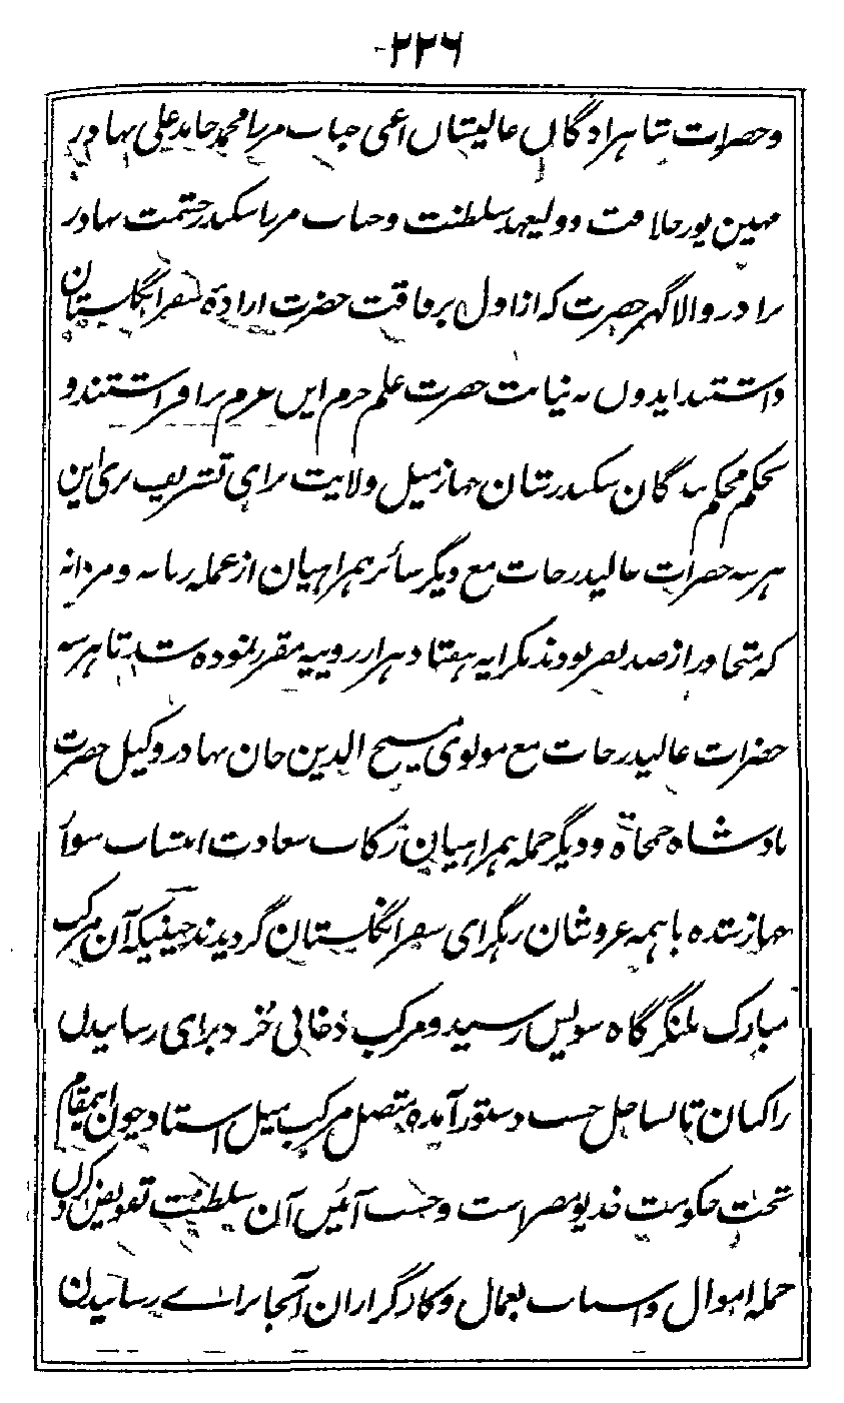 -۲۲۶
وحضرات شاہزادگان عالیشان اعنی جناب مرزا محمد حامد علی بہادر
مہین پور خلافت و ولیعہد سلطنت وجناب مرزا سکندر حشمت بہادر
برادر والا گہر حضرت کہ از اول برفاقت حضرت ارادۂ سفر انگلستان
داشتند ایدون بہ نیابت حضرت علم جزم این عزم برافراشتند و
بحکم محکم بندگان سکندرشان جہاز میل ولایت برای تشریف بری این
ہر سہ حضرات عالیدرجات مع دیگر سائر ہمراہیان از عملہ زنانہ و مردانہ
کہ متجاوز از صد نفر بودند بکرایہ ہفتاد ہزار روپیہ مقرر نمودہ شد تا ہر سہ
حضرات عالیدرجات مع مولوی مسیح الدین خان بہادر وکیل حضرت
بادشاہ جمجاہ و دیگر جملہ ہمراہیان رکاب سعادت انتساب سوار
جہاز شدہ باہمہ عز و شان رہگرای سفر انگلستان گردیدند حینیکہ آن مرکب
مبارک بلنگرگاہ سویس رسید و مرکب دخانی خرد برای رسانیدن
راکبان تا بساحل حسب دستور آمدہ متصل مرکب میل استاد چون اینمقام
تحت حکومت خدیو مصر است وحسب آئین آن سلطنت تفویض کردن
جملہ اموال و اسباب بعمال و کارگزاران آنجا براے رسانیدن